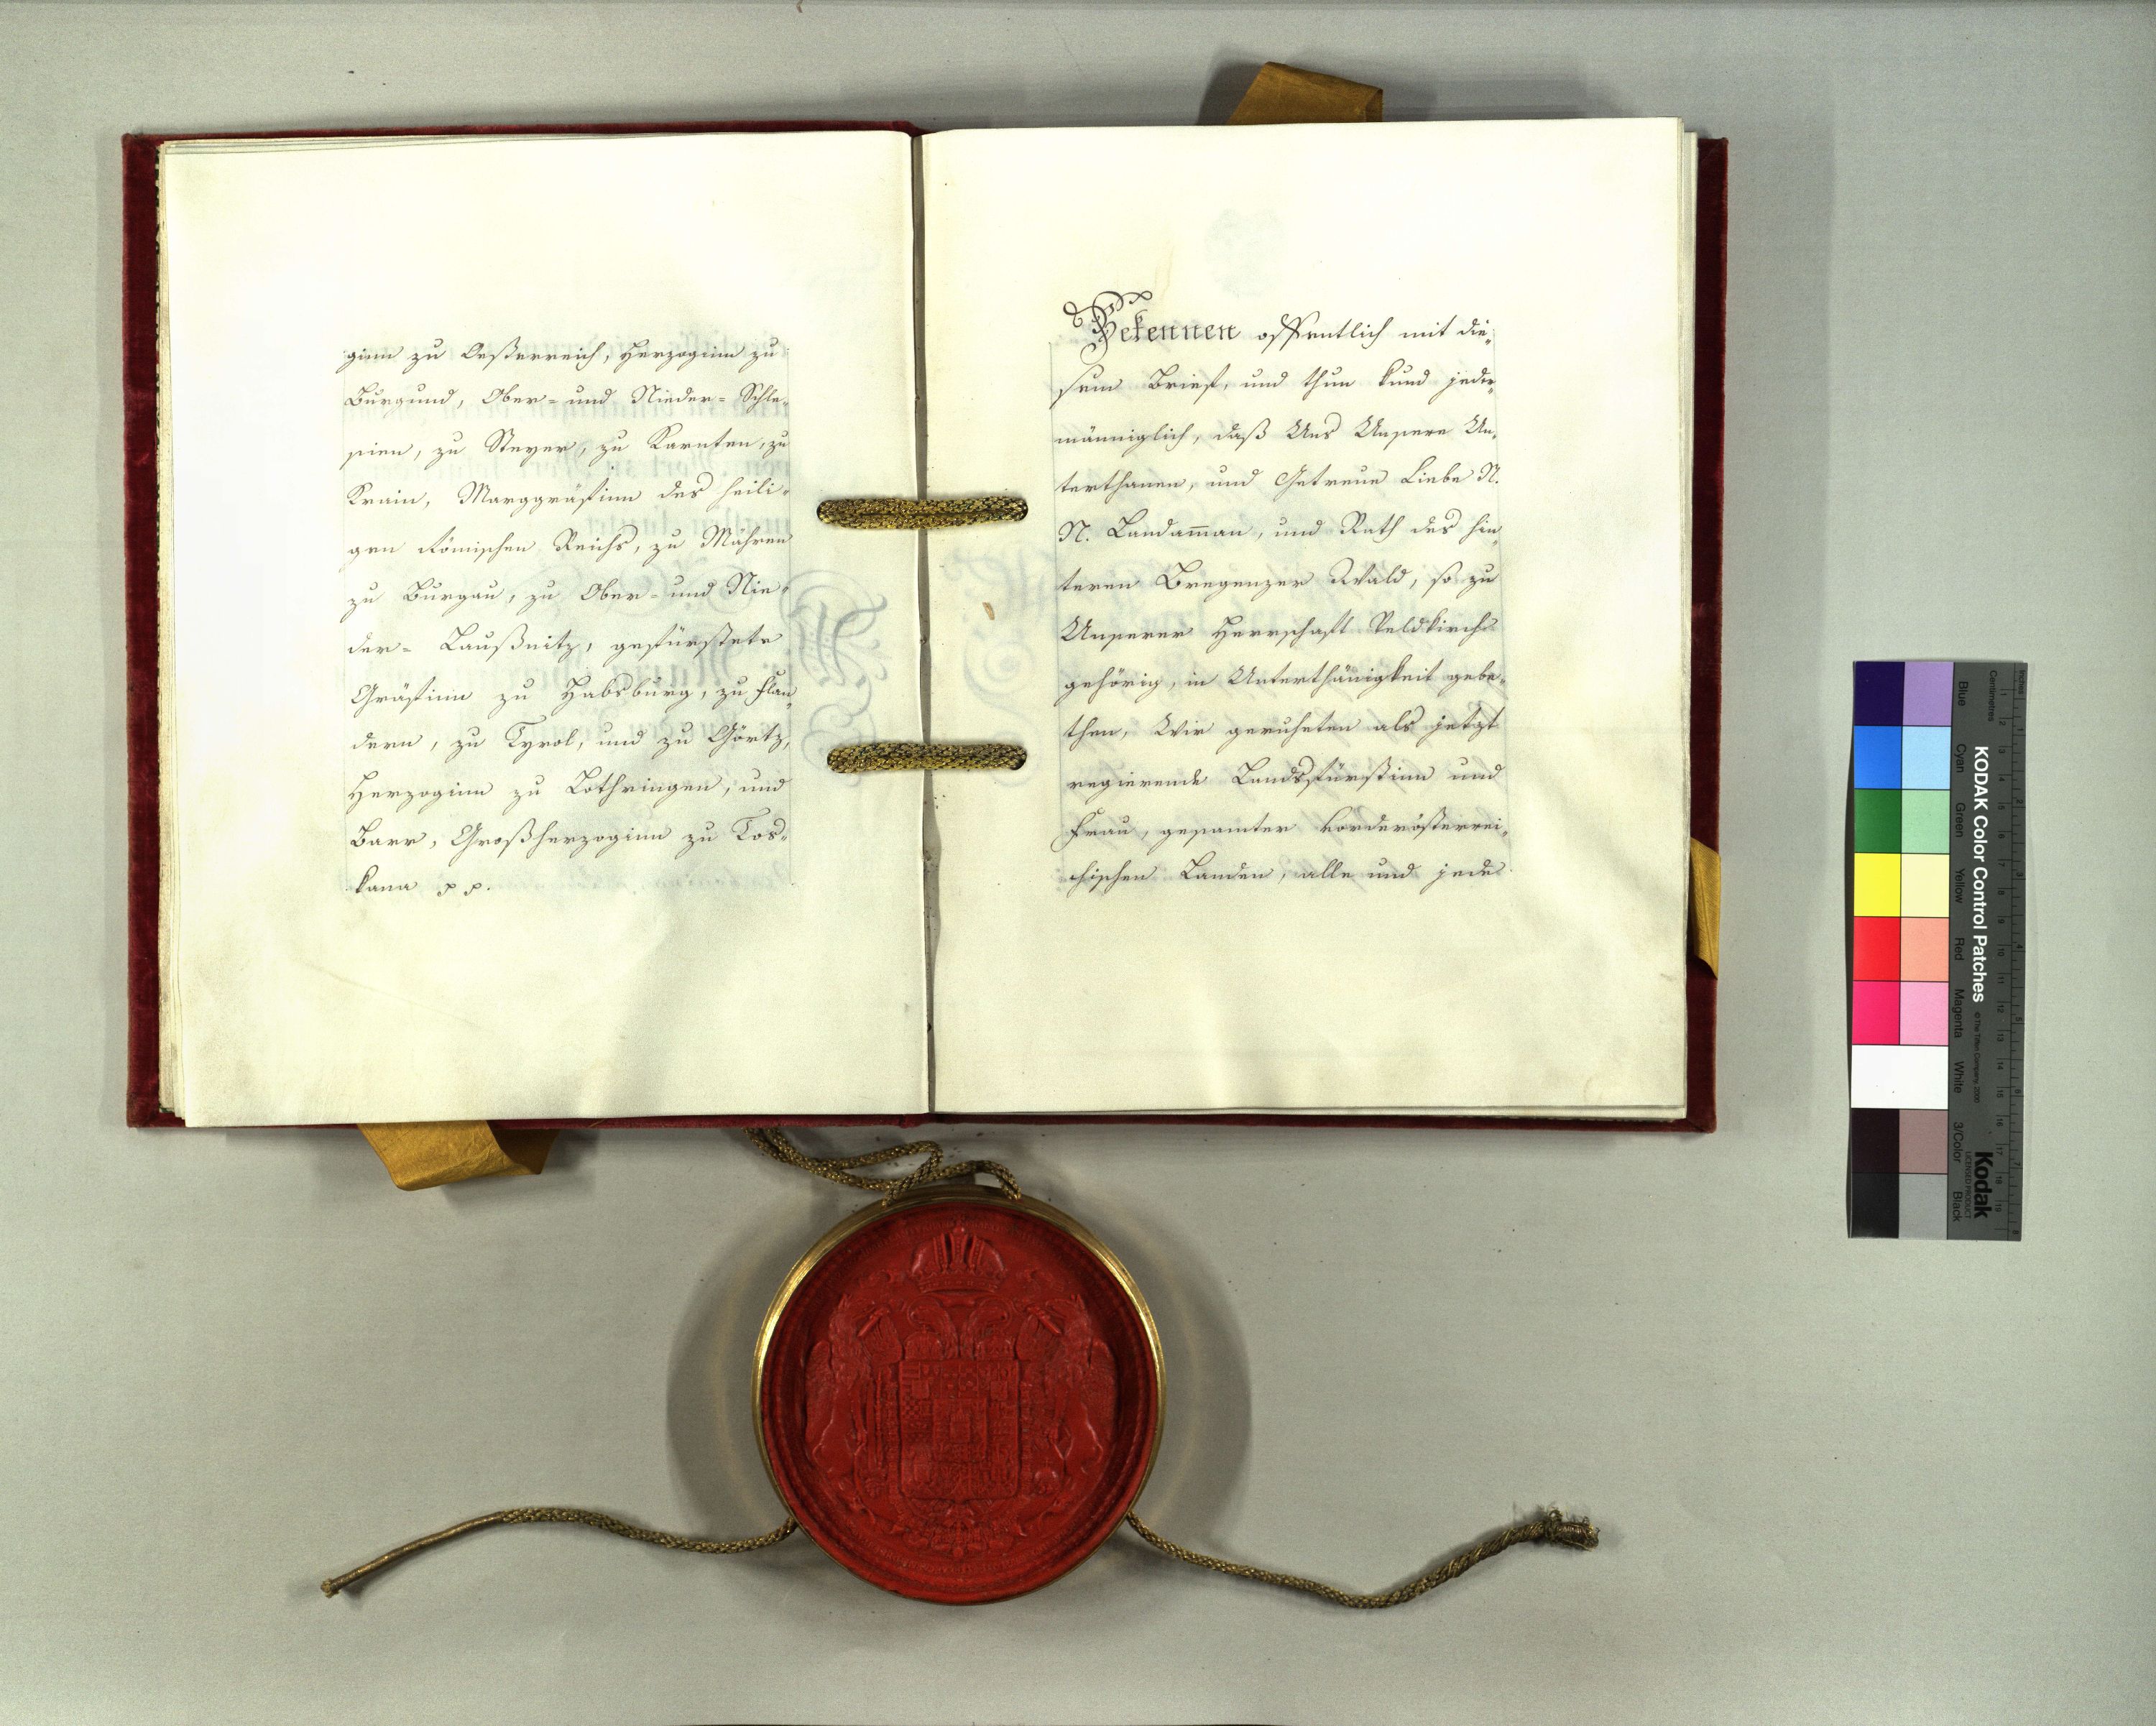 ginn zu Oesterreich, Herzoginn zu
Burgund, Ober- und Nieder- Schle-
sien, zu Steyer, zu Kärnten, zu
Krain, Marggräfinn des heili-
gen Römischen Reichs, zu Mähren
zu Burgau, zu Ober- und Nie-
der- Laußnitz, gefürstete
Gräfinn zu Habsburg, zu Flan-
dern, zu Tyrol, und zu Görtz,
Herzoginn zu Lothringen, und
Barr, Großherzoginn zu Tos-
kana
Bekennen offentlich mit die-
sem Brief, und thun kund jeder-
männiglich, daß Uns Unsere Un-
terthanen, und Getreue Liebe N.
N. Landam̄an, und Rath des hin-
teren Bregenzer Wald, so zu
Unserer Herrschaft Veldkirch
gehörig, in Unterthänigkeit gebe-
then, Wir geruheten als jetzt
regierende Landsfürstinn und
Frau, gesamter vorderösterrei-
chischen Landen, alle und jede
KODAK Color Control Patches
Kodak
LICENSED PRODUCT
© The Tiffen Company, 2000
Centimetres
Inches
Blue
Cyan
Green
Yellow
Red
Magenta
White
3/Color
Black